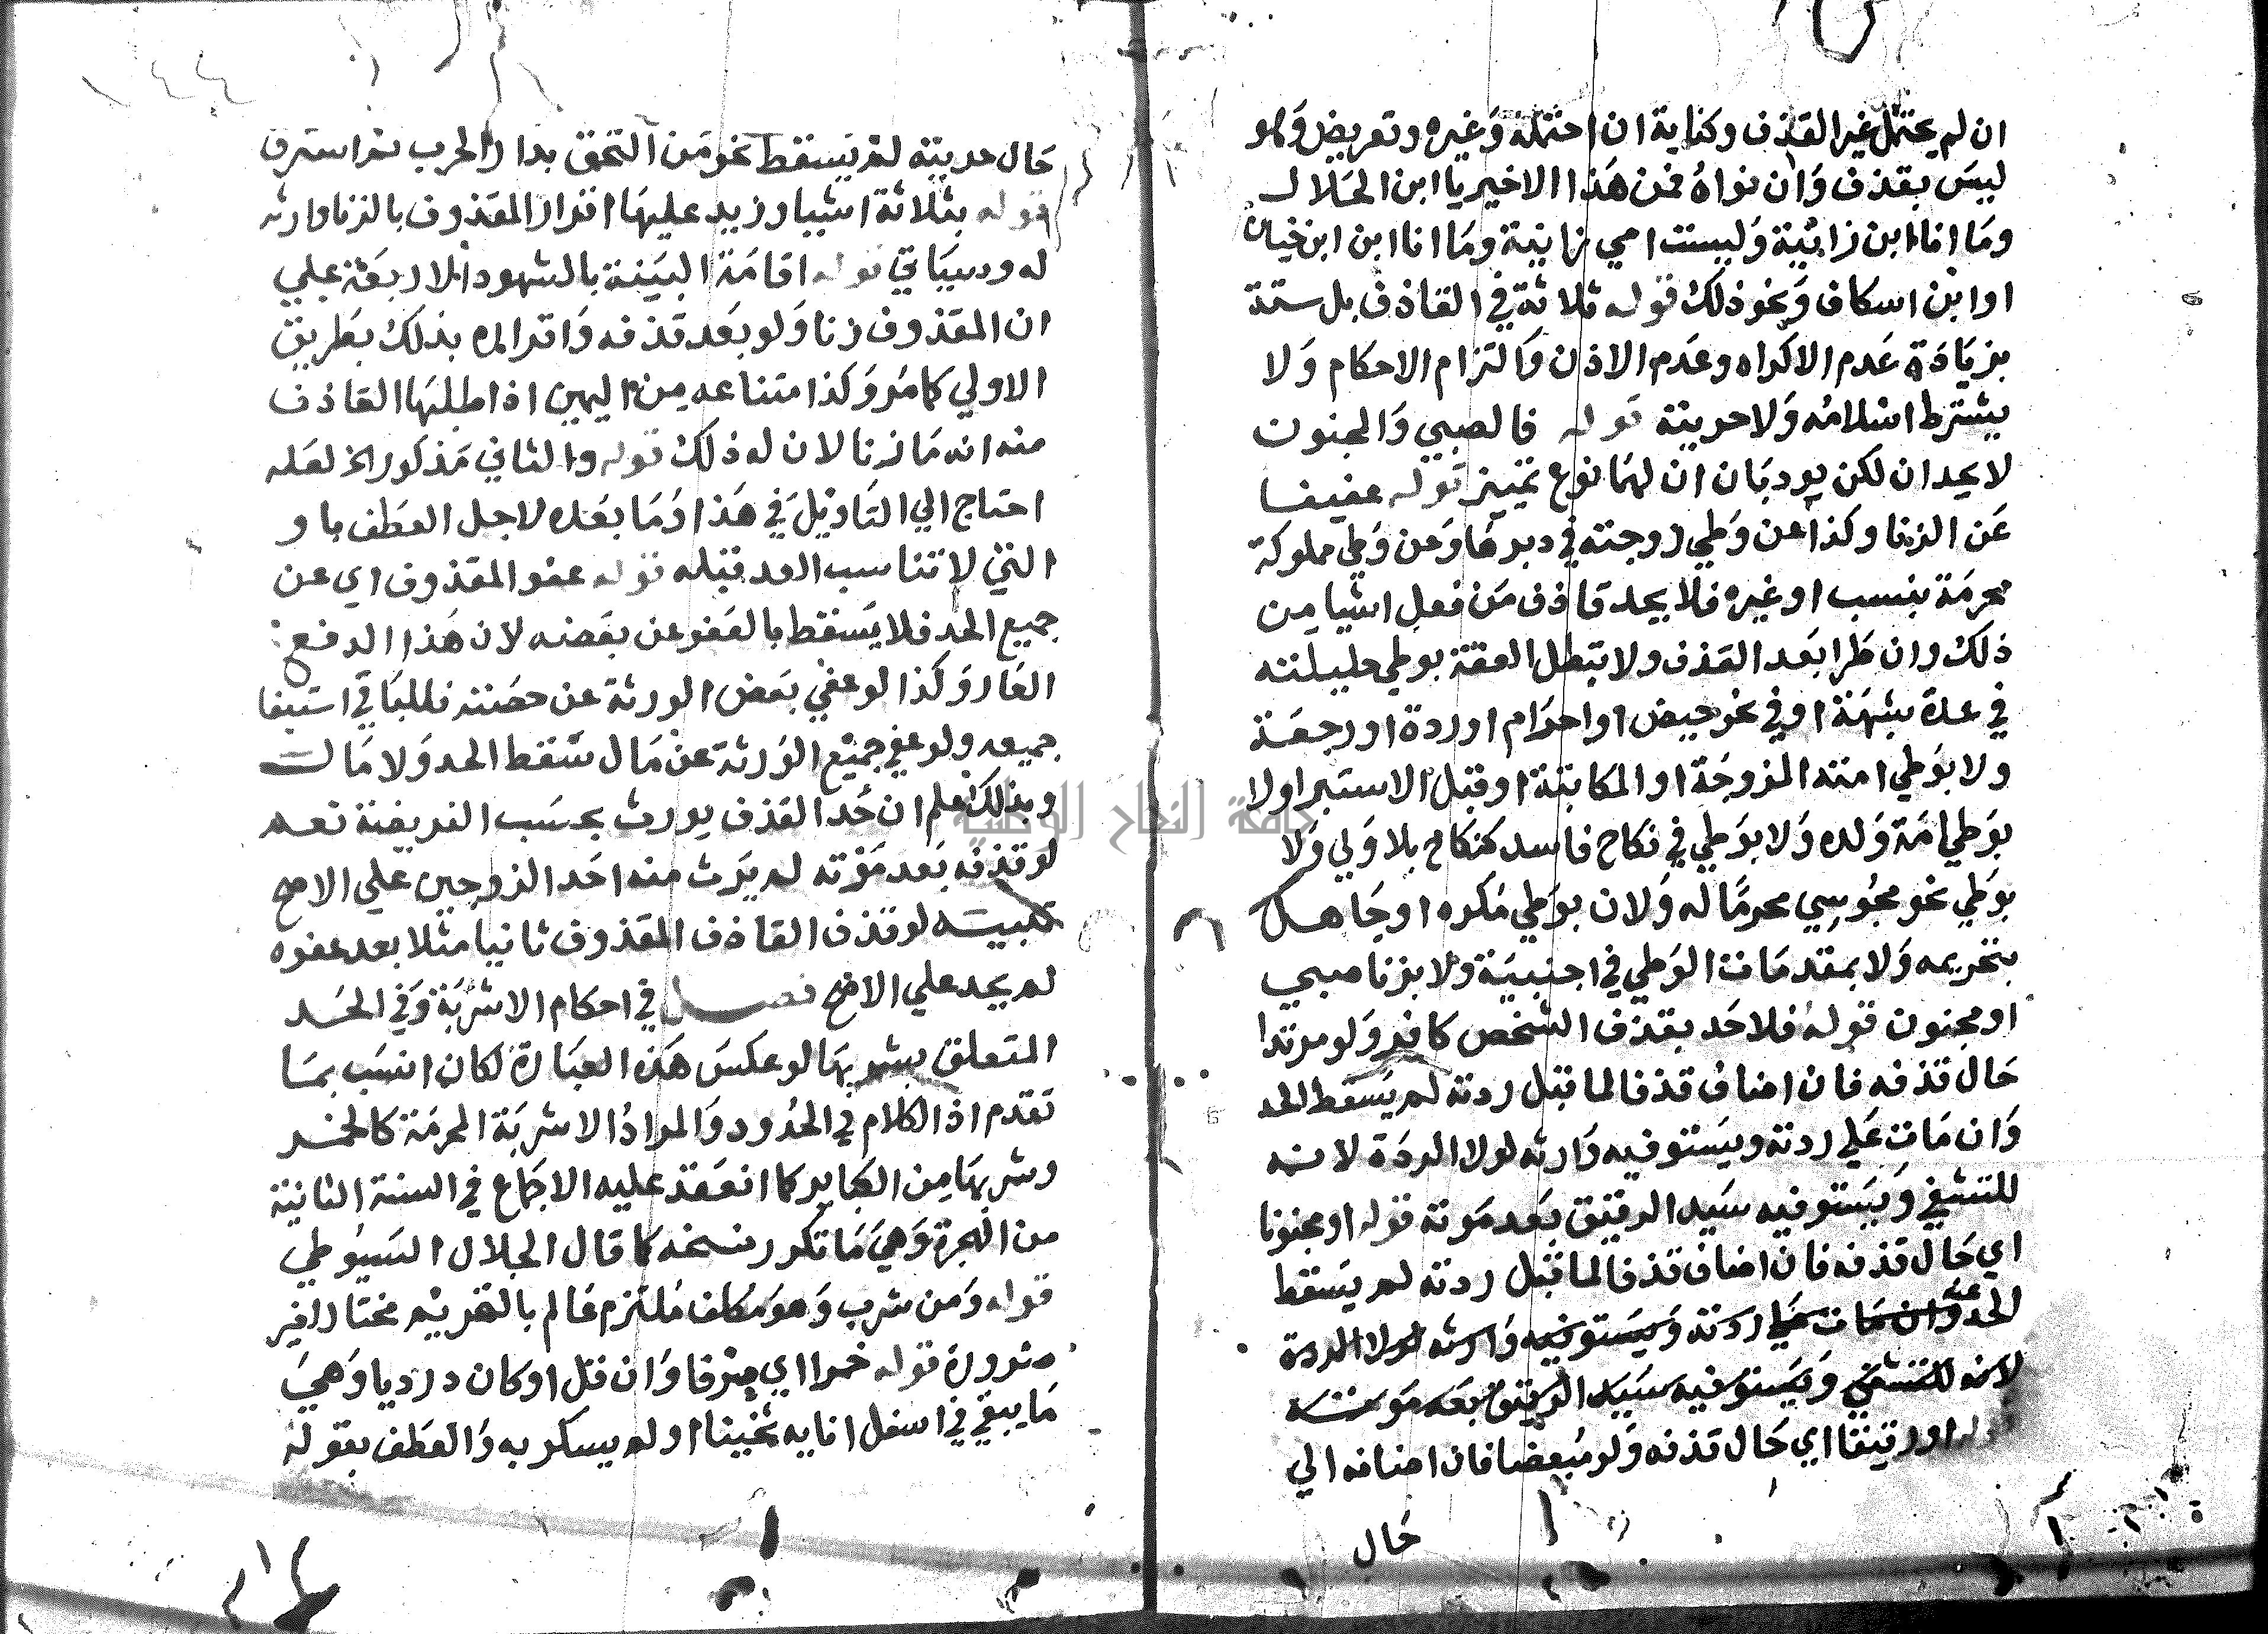 ان لم يحتمل غير القذف وكناية ان احتمله وغيره وتعريض وهو
ليس بقذف وان نواه فمن هذا الاخير يا ابن الحلال
وما انا ابن زانية وليست امي زانية وما انا ابن خباز
او ابن اسكاف ونحو ذلك قوله ثلاثة في القاذف بل ستة
بزيادة عدم الاكراه وعدم الاذن والتزام الاحكام ولا
يشترط اسلامه ولا حريته قوله فالصبي والمجنون
لا يحدان لكن يودبان ان لهما نوع تمييز قوله عفيفا
عن الزنا وكذا عن وطي زوجته في دبرها وعن وطي مملوكة
محرمة بنسب او غيره فلا يحد قاذف من فعل اشيا من
ذلك وان طرا بعد القذف ولا تبطل العفة بوطي حليلته
في عدة شبهة او في نحو حيض او احرام او ردة او رجعة
ولا بوطي امته المزوجة او المكاتبة او قبل الاستبرا ولا
بوطي امة ولده ولا بوطي في نكاح فاسد كنكاح بلا ولي ولا
بوطي نحو مجوسي محرما له ولان بوطي مكره او جاهل
بتحريمه ولا بمقدمات الوطي في اجنبية ولا بزنا صبي
او مجنون قوله فلا حد بقذف الشخص كافر ولو مرتدا
حال قذفه فان اضاف قذفا لما قبل ردته لم يسقط الحد
وان مات علي ردته ويستوفيه وارثه لولا الردة لانه
للتشفي ويستوفيه سيد الرقيق بعد موته قوله او مجنونا
اي حال قذفه فان اضاف قذفا لما قبل ردته لم يسقط
الحد عنه وان مات علي ردته ويستوفيه وارثه لولا الردة
لانه للتشفي ويستوفيه سيد الرقيق بعد موته
قوله او رقيقا اي حال قذفه ولو مبعضا فان اضافه الي
حال
١٤٤
حال حريته لم يسقط نحو من التحق بدار الحرب ثم استرق
قوله بثلاثة اشيا وزيد عليها اقرار المقذوف بالزنا وارثه
له وسياتي قوله اقامة البينة بالشهود الاربعة علي
ان المقذوف زنا ولو بعد قذفه واقراره بذلك بطريق
الاولي كما مر وكذا امتناعه من اليمين اذا طلبها القاذف
منه انه ما زنا لان له ذلك قوله والثاني مذكور الخ لعله
احتاج الي التاويل في هذا وما بعده لاجل العطف باو
التي لا تناسب العد قبله قوله عفو المقذوف اي عن
جميع الحد فلا يسقط بالعفو عن بعضه لان هذا الدفع
العار وكذا لو عفي بعض الورثة عن حصته فللباقي استيفا
جميعه ولو عفي جميع الورثة عن مال سقط الحد ولا مال
وبذلك علم ان حد القذف يورث بحسب الفريضة نعم
لو قذفه بعد موته لم يرث منه احد الزوجين علي الاصح
تنبيه لو قذف القاذف المقذوف ثانيا مثلا بعد عفوه
لم يحد علي الاصح فصل في احكام الاشربة وفي الحد
المتعلق بشربها لو عكس هذه العبارة لكان انسب بما
تقدم اذ الكلام في الحدود والمراد الاشربة المحرمة كالخمر
وشربها من الكباير كما انعقد عليه الاجماع في السنة الثانية
من الهجرة وهي ما تكرر نسخه كما قال الجلال السيوطي
قوله ومن شرب وهو مكلف ملتزم عالم بالتحريم مختار لغير
ضرورة قوله خمرا اي صرفا وان قل او كان درديا وهي
ما يبقي في اسفل انايه ثخينا او لم يسكر به والعطف بقوله
جامعة النجاح الوطنية